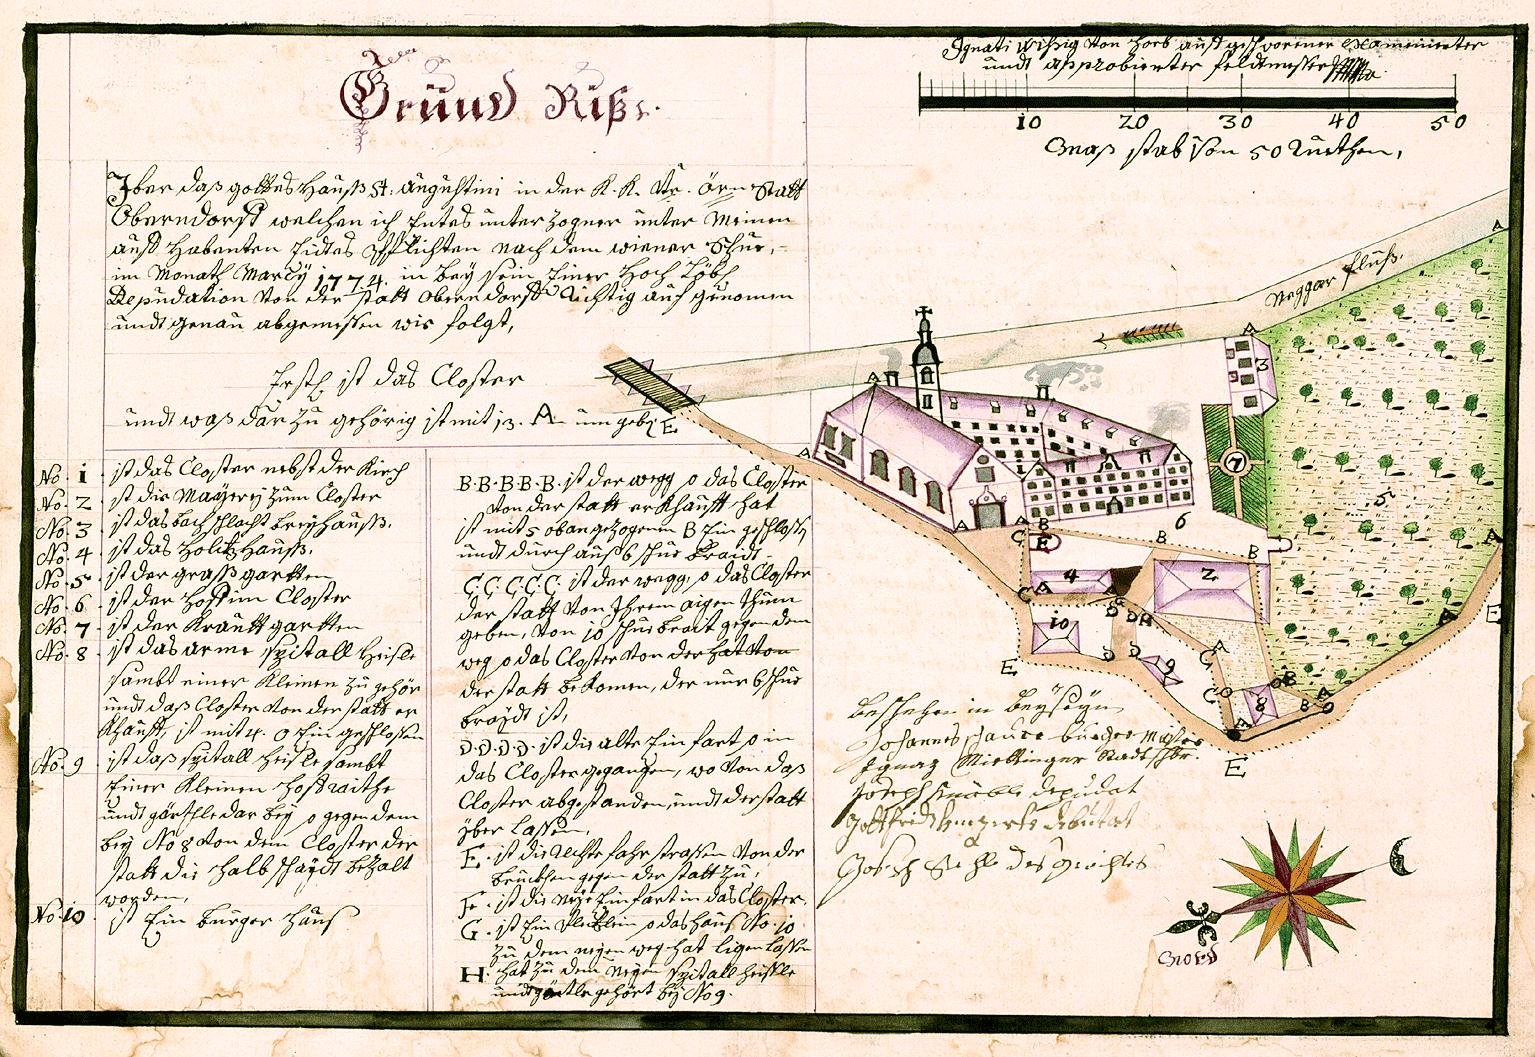 Ignati von Horb auss geschworener examinierter
undt approbierter feldmesser
10 20 30 40 50
Maß stab von 50 Ruethen,
Grund Riß.
Iber daß gottes Hauß St: Augustini in der K. K. Statt
Oberndorff welchen ich Entes unter zogner unter Meinen
auff Habenten Eidtes Pflichten nach dem wiener Schue,
im Monath Marcÿ 1774. in beÿ sein Einer Hoch Löbl
Depudation von der statt oberndorff Richtig auf genomen
undt genau abgemessen wie folgt,
Erstl ist das Closter
undt waß dar zu gehörig ist mit 13. A um geben
No 1 ist das Closter nebst der Kirch
No. 2 ist die Mayereÿ zum Closter
No. 3 ist das bach schlacht breÿhauß.
No. 4 ist das Holtz Hauß.
No. 5 ist der groß gartten
No. 6 ist der Hoff im Closter
No. 7 ist der Kraütt gartten
No. 8 ist das arme spitall Heisle
sambt einer Kleinen zu gehör
undt daß Closter von der statt er
Khaufft, ist mit 4. O Ein geschlossen
No. 9 ist daß spitall Heisle sambt
Einer Kleinen Hoffraithe
undt gärthle dar beÿ so gegen dem
beÿ No 8 von dem Closter der
statt die halb schaÿdt behalt
worden,
No. 10 ist Ein burger Haus
B. B. B. B. B. ist der wegg so das Closter
von der statt erkhaufft hat
ist mit 5 oban gezogenen B Ein geschlossen
undt durch auß 6 schue braidt
C. C. C. C. C. ist der wegg, so das Closter
der statt von Ihrem aigen thum
geben, von 10 schue brait gegen dem
weg so das Closter von der hat von
der statt bekomen, der nur 6 schue
braÿdt ist,
D. D. D. D. ist die alte Einfart so in
das Closter gegangen, wo von daß
Closter abgestanden, undt der statt
yber lassen,
E. ist die Rechte fahr strassen von der
brückhen gegen der statt zu,
F. ist die neÿe Einfart in das Closter
G. ist Ein so das Hauß No. 10
zu dem neyen weg hat ligen lassen
H. hat zu dem neyen spitall Heissle
undt gärtle gehört beÿ No 9.
Neggar fluß.
A A A A A A A A A A
B B B B B
C C C C
D D D D
E E E E
F
G
H
1 2 3 4 5 6 7 8 9 10
beschehen in beÿseÿn
Johannes burger Meister
Ignaz Stadtschbr.
Joseph depudat
Gottfried debutat
Joseph des gerichtes
Nord